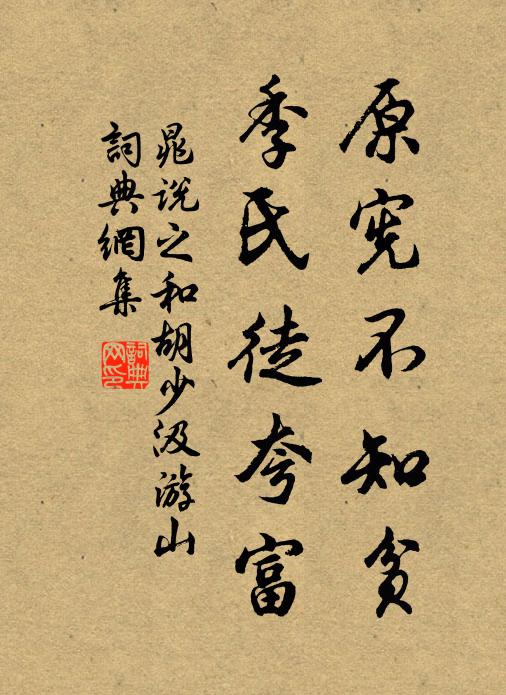 原宪不知贫
季氏徒夸富
晁说之和胡少汲游山
詞典網集
詞典
网印